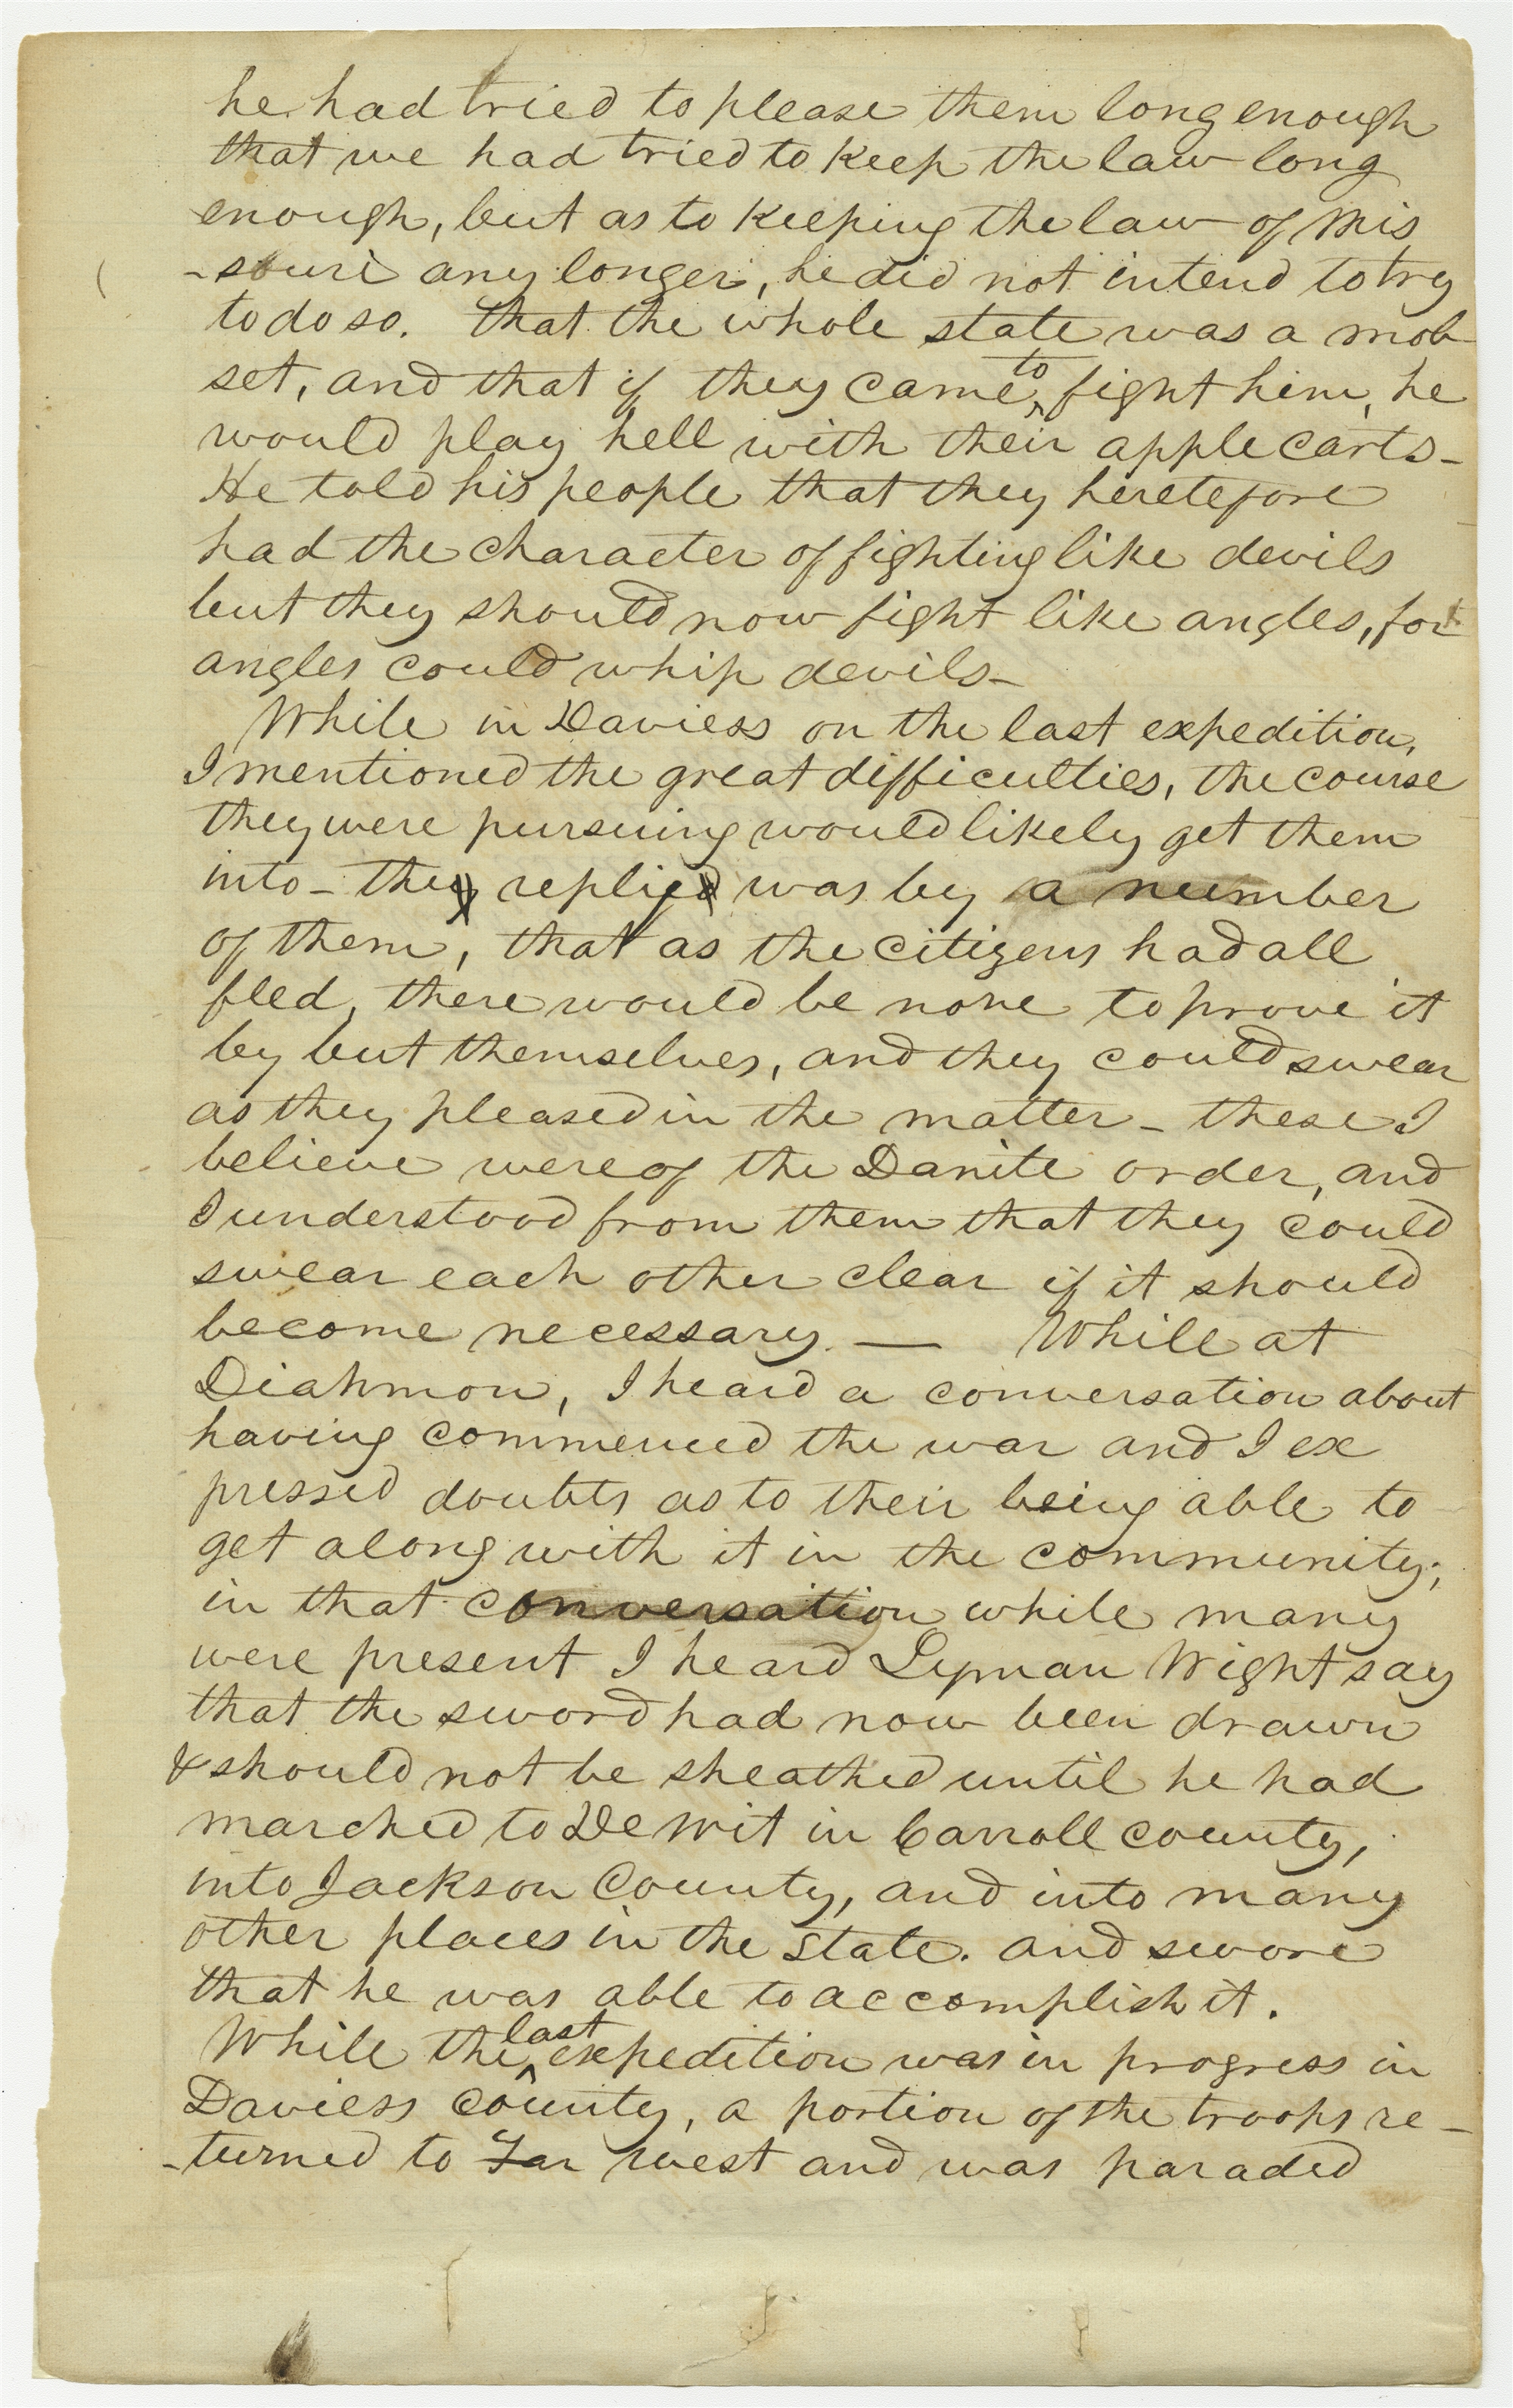 he had tried to please them long enough
that we had tried to keep the law long
enough, but as to keeping the law of Mis
-souri any longer, he did not intend to try
to do so. that the whole state was a mob
set, and that if they came to fight him, he
would play hell with their apple carts-
He told his people that they heretefore
had the character of fighting like devils
but they should now fight like angles, for
angles could whip devils-
While in Daviess on the last expedition,
I mentioned the great difficulties, the course
they were pursuing would likely get them
into- the reply was by a number
of them, that as the citizens had all
fled, there would be none to prove it
by but themselves, and they could swear
as they pleased in the matter- these I
believe were of the Danite order, and
I understood from them that they could
swear each other clear if it should
become necessary. — While at
Diahmon, I heard a conversation about
having commenced the war and I ex
pressed doubts as to their being able to
get along with it in the community;
in that conversation while many
were present I heard Lyman Wight say
that the sword had now been drawn
& should not be sheathed until he had
marched to De Wit in Carroll county,
into Jackson County, and into many
other places in the state. and swore
that he was able to accomplish it.
While the last expedition was in progress in
Daviess county, a portion of the troops re-
-turned to Far West and was paraded